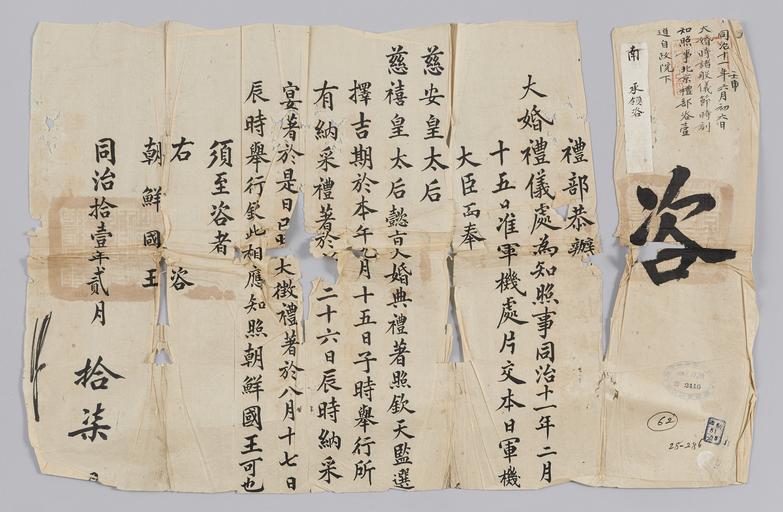 同治十一年六月初六日
壬申
大婚時諸般儀節時刻
知照事北京禮部咨壹
道自政院下
南 承領咨
咨
禮部恭辦
大婚禮儀處為知照事同治十一年二月
十五日准軍機處片交本日軍機
大臣面奉
慈安皇太后
慈禧皇太后懿旨大婚典禮著照欽天監選
擇吉期於本年九月十五日子時舉行所
有納采禮著於 二十六日辰時納采
宴著於是日巳 大徵禮著於八月十七日
辰時舉行欽此相應知照朝鮮國王可也
須至咨者
右咨
朝鮮國王
同治拾壹年貳月 拾柒
3116
62
25-246